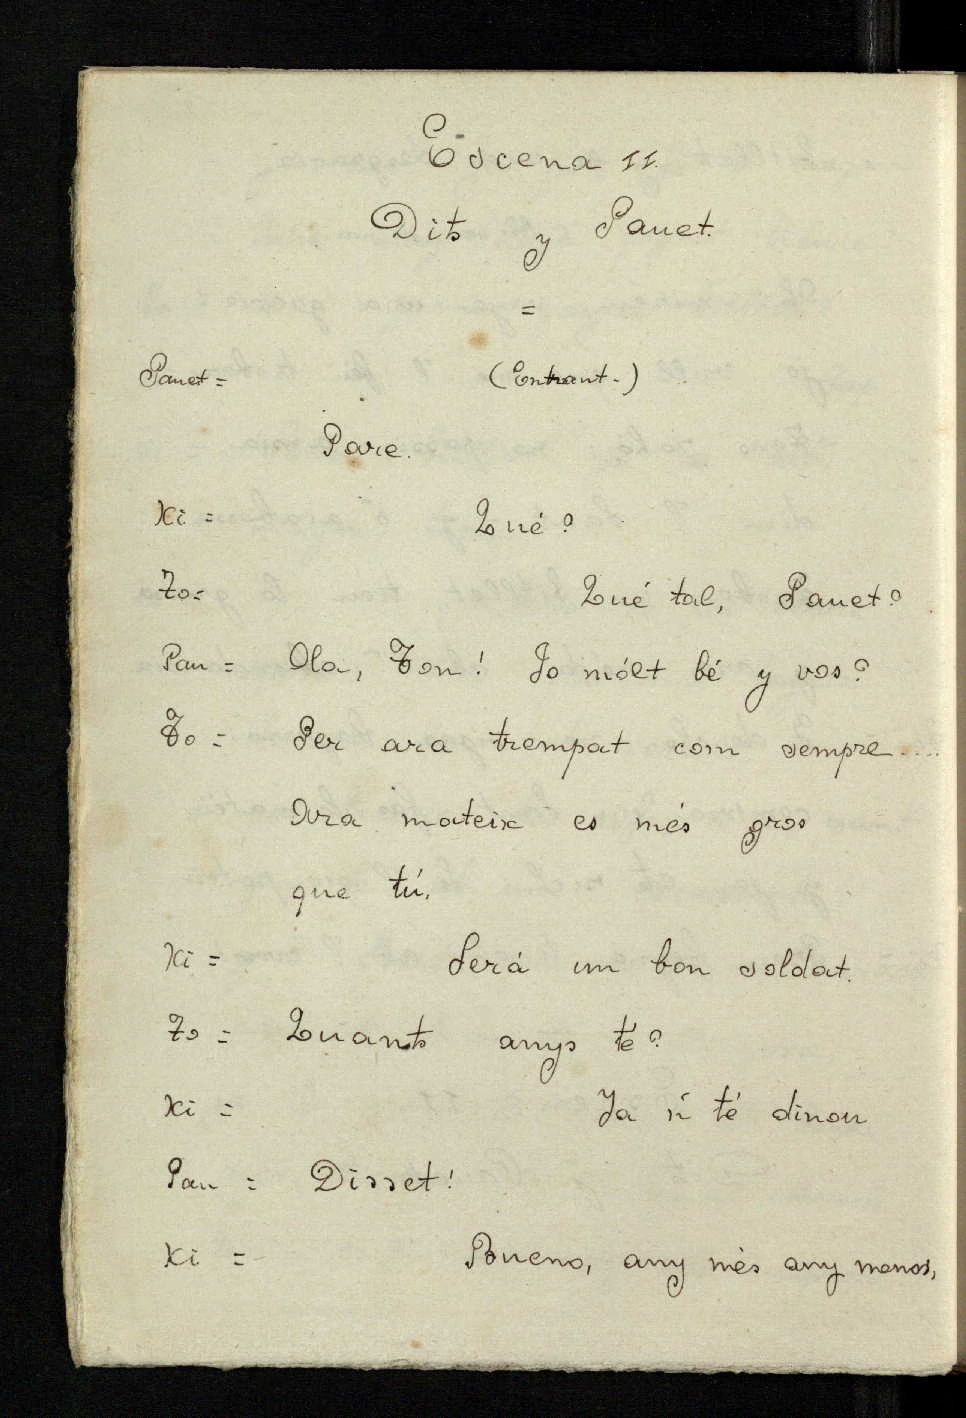 Escena 11.
Dits y Pauet.
=
Pauet = (Entrant.)
Pare.
Xi = Qué?
To = Qué tal, Pauet?
Pau = Ola, Ton! Jo mólt bé y vos?
To = Per ara trempat com sempre....
Ara mateix es més gros
que tú.
Xi = Será un bon soldat.
To = Quants anys té?
Xi = Ja n' té dinou
Pau = Disset!
Xi = Bueno, any més any menos,